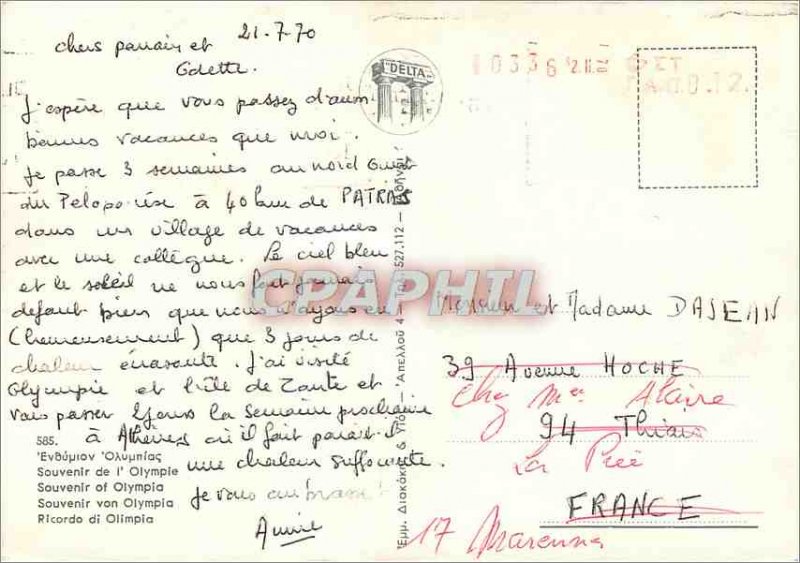 21.7.70
chers parrain et
Odette.
J'espère que vous passez d'aussi
bonnes vacances que moi.
Je passe 3 semaines au nord Ouest
du Péloponèse à 40 km de PATRAS
dans un village de vacances
avec une collègue. Le ciel bleu
et le soleil ne nous font jamais
defaut bien que nous n'ayons eu
(heureusement) que 3 jours de
chaleur écrasante. J'ai visité
Olympie et l'île de Zante et
vais passer 4 jours la semaine prochaine
à Athènes où il fait parait-il
une chaleur suffocante.
Je vous embrasse
Annie
585.
Ἐνθύμιον Ὀλυμπίας
Souvenir de l' Olympie
Souvenir of Olympia
Souvenir von Olympia
Ricordo di Olimpia
DELTA
Ἐμμ. Διακάκης & Υἱός — Ἀπελλοῦ 4 — Τηλ. 527.112 — Ἀθῆναι
0336
CPARPHIL
Monsieur et Madame DAJEAN
39 Avenue HOCHE
Chez Mme Alaire
94 Thiais
La Prée
FRANCE
17 Marennes